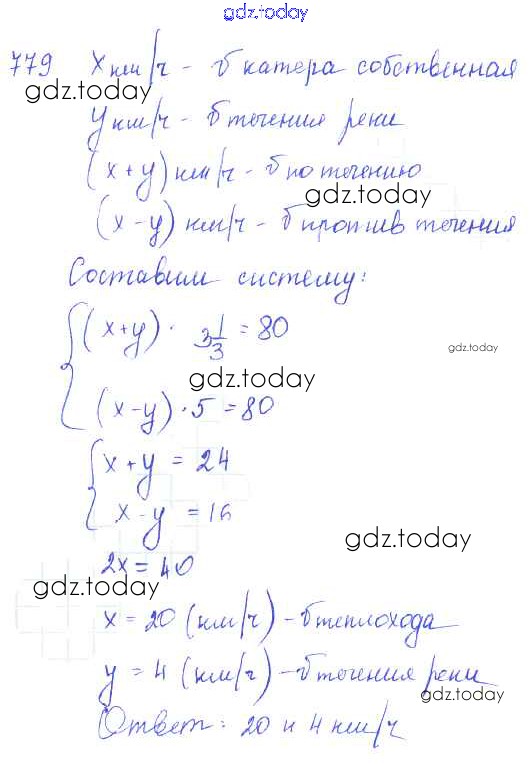 gdz.today
779 x км/ч - v катера собственная
gdz.today
y км/ч - v течения реки
(x + y) км/ч - v по течению
gdz.today
(x - y) км/ч - v против течения
Составим систему:
(x+y) · 3 1/3 = 80
gdz.today
gdz.today
(x - y) · 5 = 80
x + y = 24
x - y = 16
gdz.today
2x = 40
gdz.today
x = 20 (км/ч) - v теплохода
y = 4 (км/ч) - v течения реки
gdz.today
Ответ: 20 и 4 км/ч